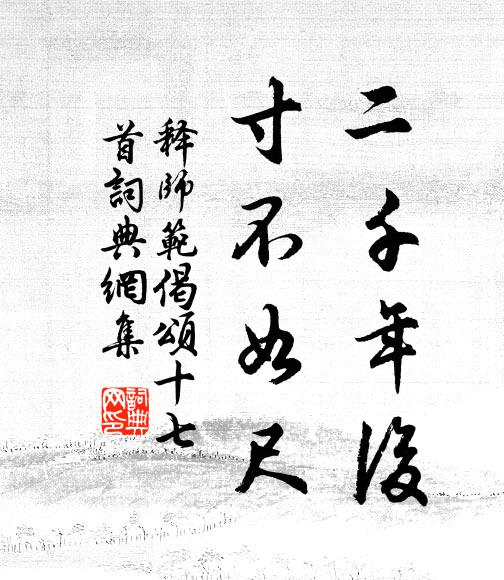 二千年後
寸不如尺
释師範偈頌十七
首詞典網集
詞典网印